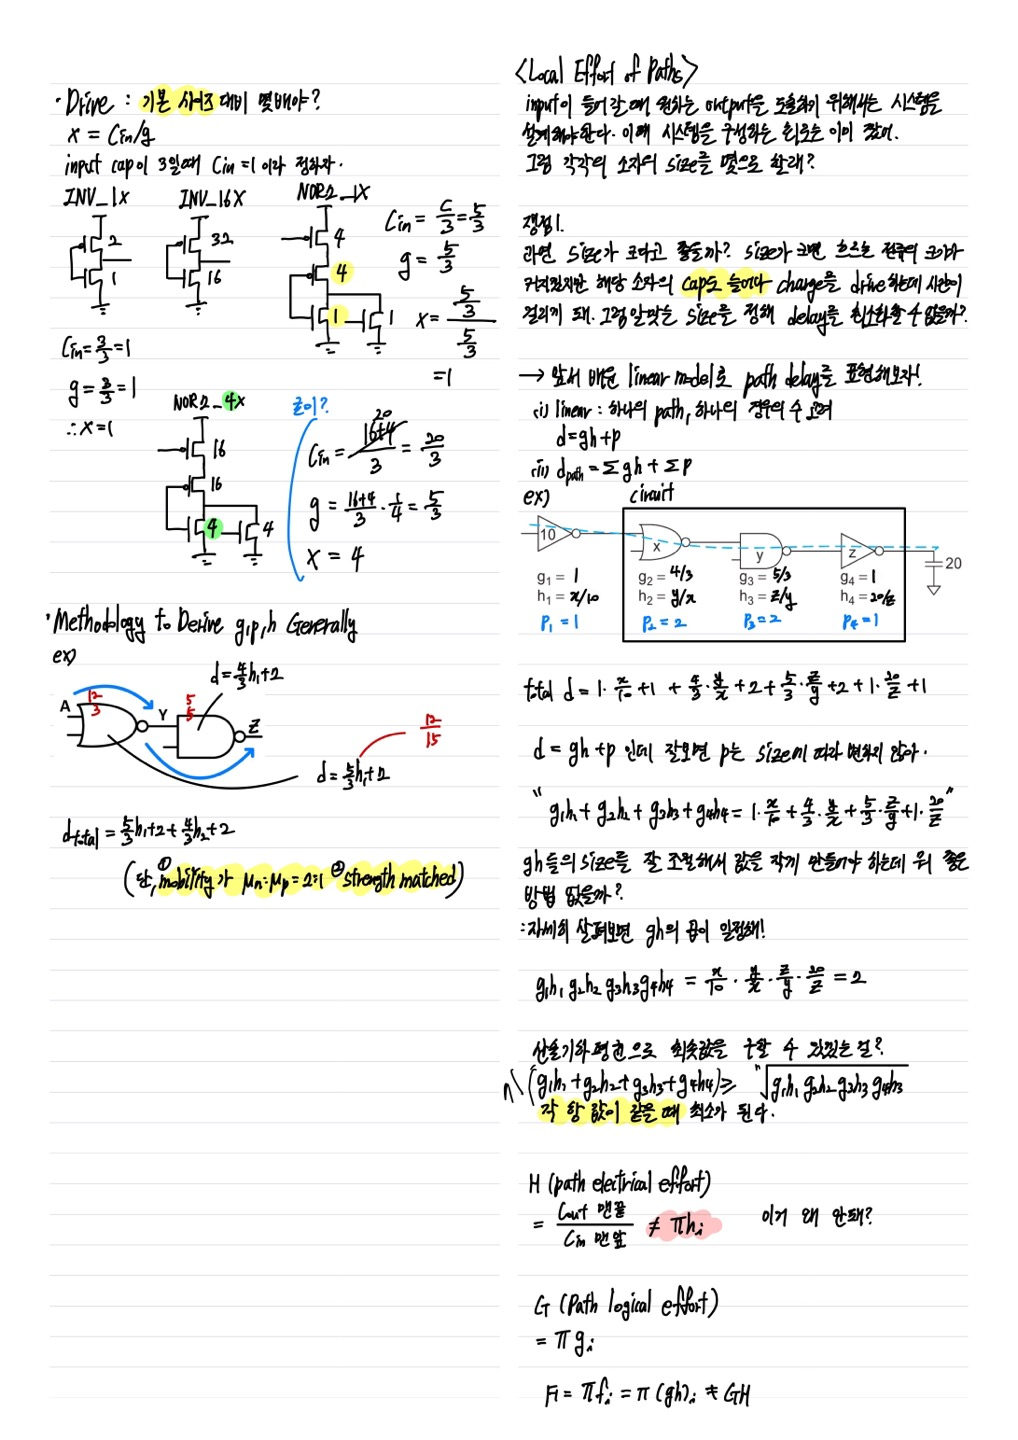 · Drive : 기본 사이즈 대비 몇배야?
x = Cin/g
input cap이 3일때 Cin = 1 이라 정하자.
INV_1x INV_16X NOR2_1X
2
1
32
16
4
4
1
1
Cin = 5/3 = 5/3
g = 5/3
x = 5/3 / 5/3
= 1
Cin = 3/3 = 1
g = 3/3 = 1
∴ x = 1
NOR2_4x
16
16
4
4
굳이?
20
Cin = 16+4/3 = 20/3
g = 16+4/3 · 1/4 = 5/3
x = 4
· Methodology to Derive g,p,h Generally
ex)
d = 4/3h₁+2
A
12
3
Y
5
5
Z
12/15
d = 5/3h₁+2
dtotal = 5/3h₁+2 + 4/3h₂+2
(단, ① mobility가 μn:μp = 2:1 ② strength matched)
<Local Effort of Paths>
input이 들어갈때 원하는 output을 도출하기 위해서는 시스템을
설계해야한다. 이때 시스템을 구성하는 회로는 이미 짰어.
그럼 각각의 소자의 size를 몇으로 할래?
쟁점1.
과연 size가 크다고 좋을까? size가 크면 흐르는 전류의 크기가
커지겠지만 해당 소자의 cap도 늘어나 charge를 drive하는데 시간이
걸리게 돼. 그럼 알맞는 size를 정해 delay를 최소화할 수 없을까?
→ 앞서 배운 linear model로 path delay를 표현해보자!
(i) linear : 하나의 path, 하나의 경우의 수 고려
d = gh+p
(ii) dpath = Σgh + Σp
ex) circuit
10 x y z 20
g₁ = 1 g₂ = 4/3 g₃ = 5/3 g₄ = 1
h₁ = x/10 h₂ = y/x h₃ = z/y h₄ = 20/z
P₁ = 1 P₂ = 2 P₃ = 2 P₄ = 1
total d = 1·x/10 + 1 + 4/3·y/x + 2 + 5/3·z/y + 2 + 1·20/z + 1
d = gh+p 인데 잘보면 p는 size에 따라 변하지 않아.
"g₁h₁ + g₂h₂ + g₃h₃ + g₄h₄ = 1·x/10 + 4/3·y/x + 5/3·z/y + 1·20/z"
gh들의 size를 잘 조절해서 값을 작게 만들어야 하는데 뭐 좋은
방법 없을까?
: 자세히 살펴보면 gh의 곱이 일정해!
g₁h₁ g₂h₂ g₃h₃ g₄h₄ = x/10 · y/x · z/y · 20/z = 2
산술기하평균으로 최솟값을 구할 수 있었는 걸?
n\(g₁h₁ + g₂h₂ + g₃h₃ + g₄h₄) ≥ ⁿ√g₁h₁ g₂h₂ g₃h₃ g₄h₃
각 항 값이 같을 때 최소가 된다.
H (path electrical effort)
= Cout 맨끝 / Cin 맨앞 ≠ πhᵢ 이거 왜 안돼?
G (Path logical effort)
= π gᵢ
F = πfᵢ = π(gh)ᵢ ≠ GH